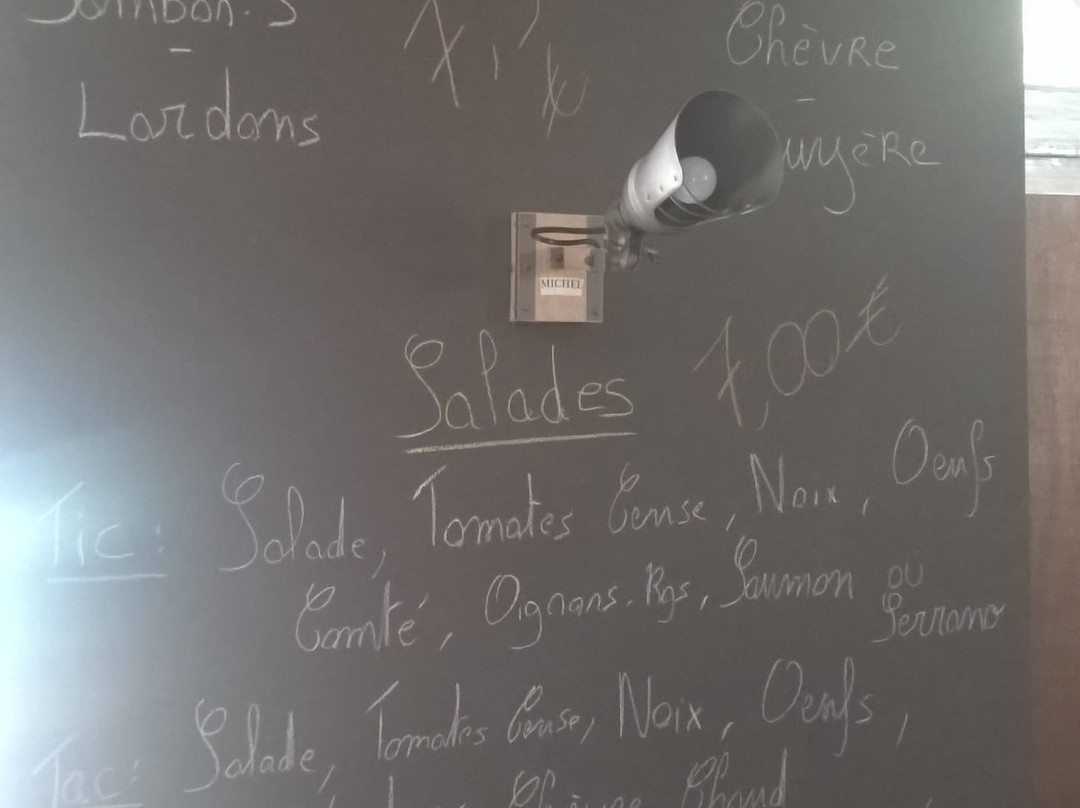 Jambon.S
-
Lardons
Chèvre
-
MICHEL
Salades 7,00€
Tic: Salade, Tomates Cerise, Noix, Oeufs
Comté, Oignons.Rgs, Saumon où
Serrano
Tac: Salade, Tomates Cerise, Noix, Oeufs,
Chèvre Chaud